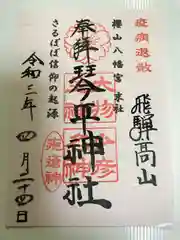 疫病退散
飛騨高山
櫻山八幡宮 末社
奉拝
琴平神社
さるぼぼ信仰の起源
令和三年 四月二十四日